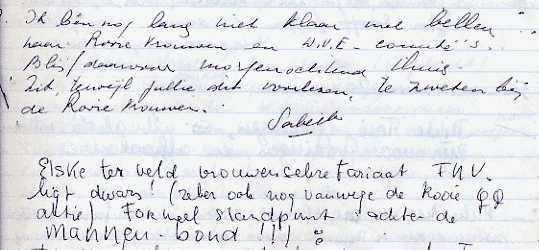 Ik bén nog lang niet klaar met bellen
naar Rooie Vrouwen en W.V.E - comité's.
Blijf daarvoor morgenochtend thuis.
Zit, terwijl jullie dit voorlezen, te zweten bij
de Rooie Vrouwen.
Isabella
Elske ter Veld vrouwensekretariaat FNV.
ligt dwars! (zeker ook nog vanwege de Rooie ♀♀
aktie) Formeel standpunt: achter de
mannen-bond !!! :